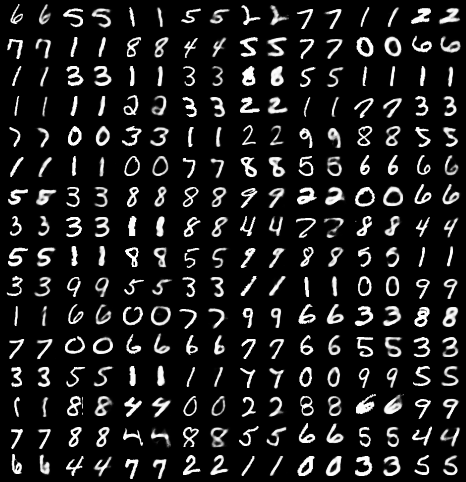 6 6 5 5 1 1 5 5 2 2 7 7 1 1 2 2
7 7 1 1 8 8 4 4 5 5 7 7 0 0 6 6
1 1 3 3 1 1 3 3 8 8 5 5 1 1 1 1
1 1 1 1 2 2 3 3 2 2 1 1 7 7 3 3
7 7 0 0 3 3 1 1 2 2 9 9 8 8 5 5
1 1 1 1 0 0 7 7 8 8 5 5 6 6 6 6
5 5 3 3 8 8 8 8 9 9 2 2 0 0 6 6
3 3 3 3 1 1 8 8 4 4 7 7 8 8 4 4
5 5 1 1 8 8 5 5 9 9 8 8 5 5 1 1
3 3 9 9 5 5 3 3 1 1 1 1 0 0 9 9
1 1 6 6 0 0 7 7 9 9 6 6 3 3 8 8
7 7 0 0 6 6 6 6 7 7 6 6 5 5 3 3
3 3 5 5 1 1 1 1 7 7 0 0 9 9 5 5
1 1 8 8 4 4 0 0 2 2 8 8 6 6 9 9
7 7 8 8 8 8 5 5 6 6 5 5 4 4
6 6 4 4 7 7 2 2 1 1 0 0 3 3 5 5